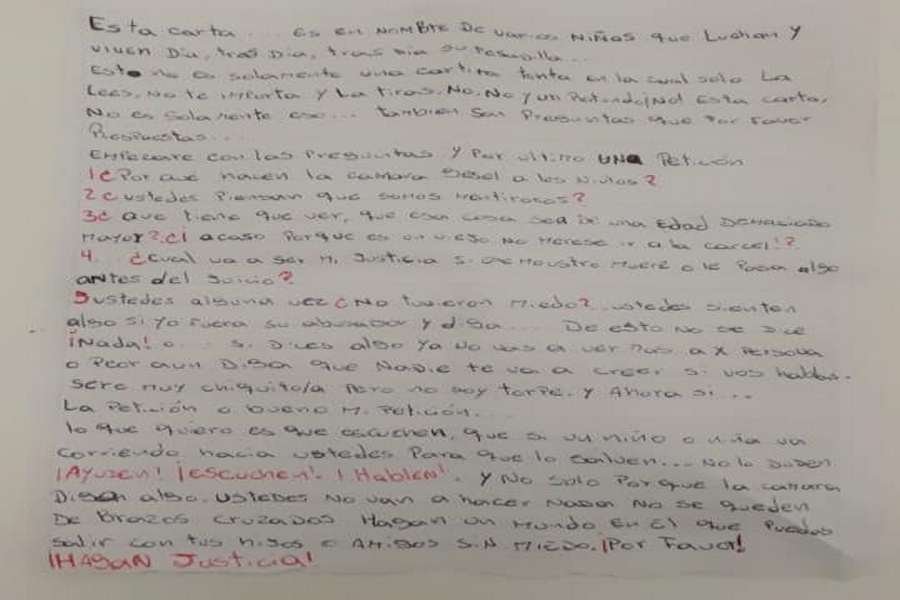 Esta carta... es en NOMBRE De varios NIÑOS que Luchan y
viven Día, tras Día, tras Día su Pesadilla...
Esto no es solamente una cartita tonta en la cual solo La
Lees, No te importa y La tiras. No, No y un Rotundo ¡No! Esta carta,
No es solamente eso... tambien son Preguntas que Por favor
Respuestas...
Empezare con las Preguntas y Por ultimo UNA Petición
1¿Por que hacen la camara Gesel a los Niños?
2¿ustedes Piensan que somos mentirosos?
3¿ que tiene que ver, que esa cosa sea de una EDAD DEMACIADO
mayor?¿i acaso Porque es un viejo no merese ir a la carcel!?
4. ¿cual va a ser Mi Justicia si ese Moustro muere o le Pasa algo
antes del Juicio?
5ustedes alguna vez ¿No tuvieron Miedo? ustedes sienten
algo si yo fuera su abusador y diga... De esto no se dice
¡Nada! o... si Dices algo ya no vas a ver mas a X Persona
o Peor aun Diga que Nadie te va a creer si vos hablas.
sere muy chiquito/a Pero no soy torpe. y Ahora si...
La Petición o bueno Mi Petición...
lo que quiero es que escuchen, que si un niño o niña va
corriendo hacia ustedes Para que lo salven... No lo Duden
¡Ayuden! ¡escuchen! ¡Hablen!. y No solo Porque la camara
Digan algo. ustedes No van a hacer Nada No se queden
De Brazos cruzados Hagan un Mundo En El que Puedas
salir con tus hijos o Amigos SiN Miedo. ¡Por Favor!
¡HAGAN Justicia!